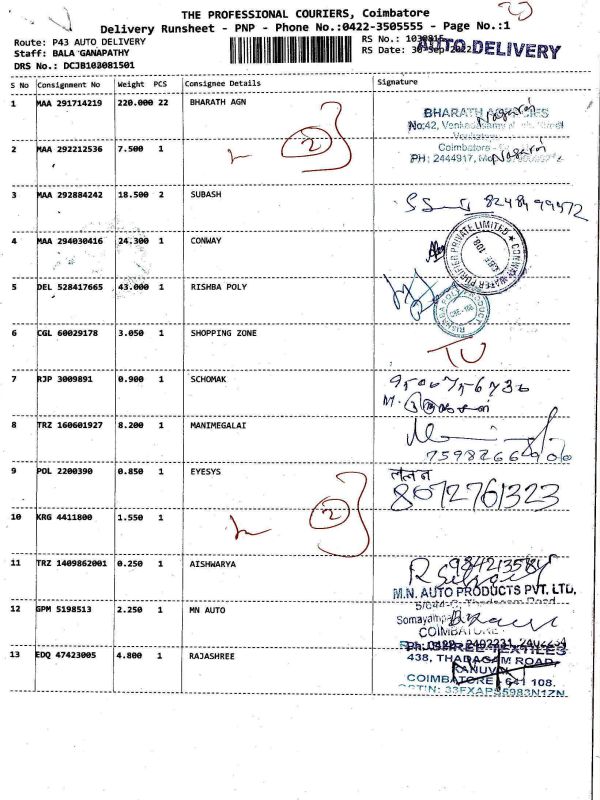 THE PROFESSIONAL COURIERS, Coimbatore
Delivery Runsheet - PNP - Phone No.:0422-3505555 - Page No.:1
Route: P43 AUTO DELIVERY
RS No.: 1030815
Staff: BALA GANAPATHY
RS Date: 30-Sep-2022
AUTO DELIVERY
DRS No.: DCJB103081501
S No Consignment No Weight PCS Consignee Details Signature
1 MAA 291714219 220.000 22 BHARATH AGN
BHARATH AGENCIES
No:42,
Nagaraj
2 MAA 292212536 7.500 1
2
Coimbatore
PH: 2444917,
Nagaraj
3 MAA 292884242 18.500 2 SUBASH
8248499572
4 MAA 294030416 24.300 1 CONWAY
CONWAY WATER PURIFIER PRIVATE LIMITED
CBE
108.
5 DEL 528417665 43.000 1 RISHBA POLY
RISHBA POLY PRODUCT
CBE-108
6 CGL 60029178 3.050 1 SHOPPING ZONE
TU
7 RJP 3009891 0.900 1 SCHOMAK
M.
8 TRZ 160601927 8.200 1 MANIMEGALAI
7598266900
9 POL 2200390 0.850 1 EYESYS
8072761323
10 KRG 4411800 1.550 1
2
11 TRZ 1409862001 0.250 1 AISHWARYA
R
M.N. AUTO PRODUCTS PVT. LTD,
12 GPM 5198513 2.250 1 MN AUTO
COIMBATORE
13 EDQ 47423005 4.800 1 RAJASHREE
SHREE TEXTILES
438, THADAGAM ROAD,
KANUVAI
COIMBATORE - 641 108.